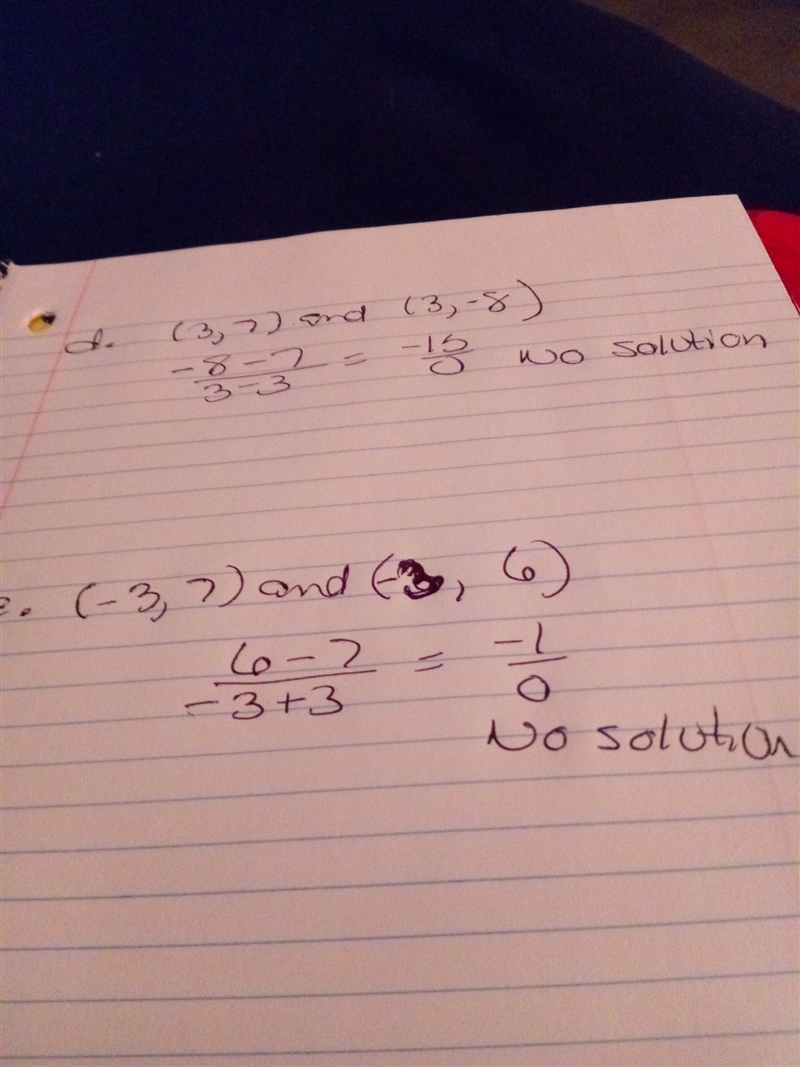 d. (3, 7) and (3, -8)
-8 - 7
3 - 3
= -15/0 No solution
e. (-3, 7) and (-3, 6)
6 - 7
-3 + 3
= -1/0
No solution